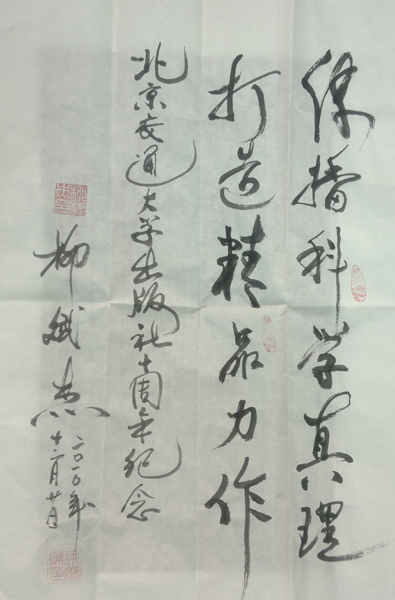 传播科学真理
打造精品力作
北京交通大学出版社十周年纪念
柳斌杰
二〇一〇年
十二月廿日